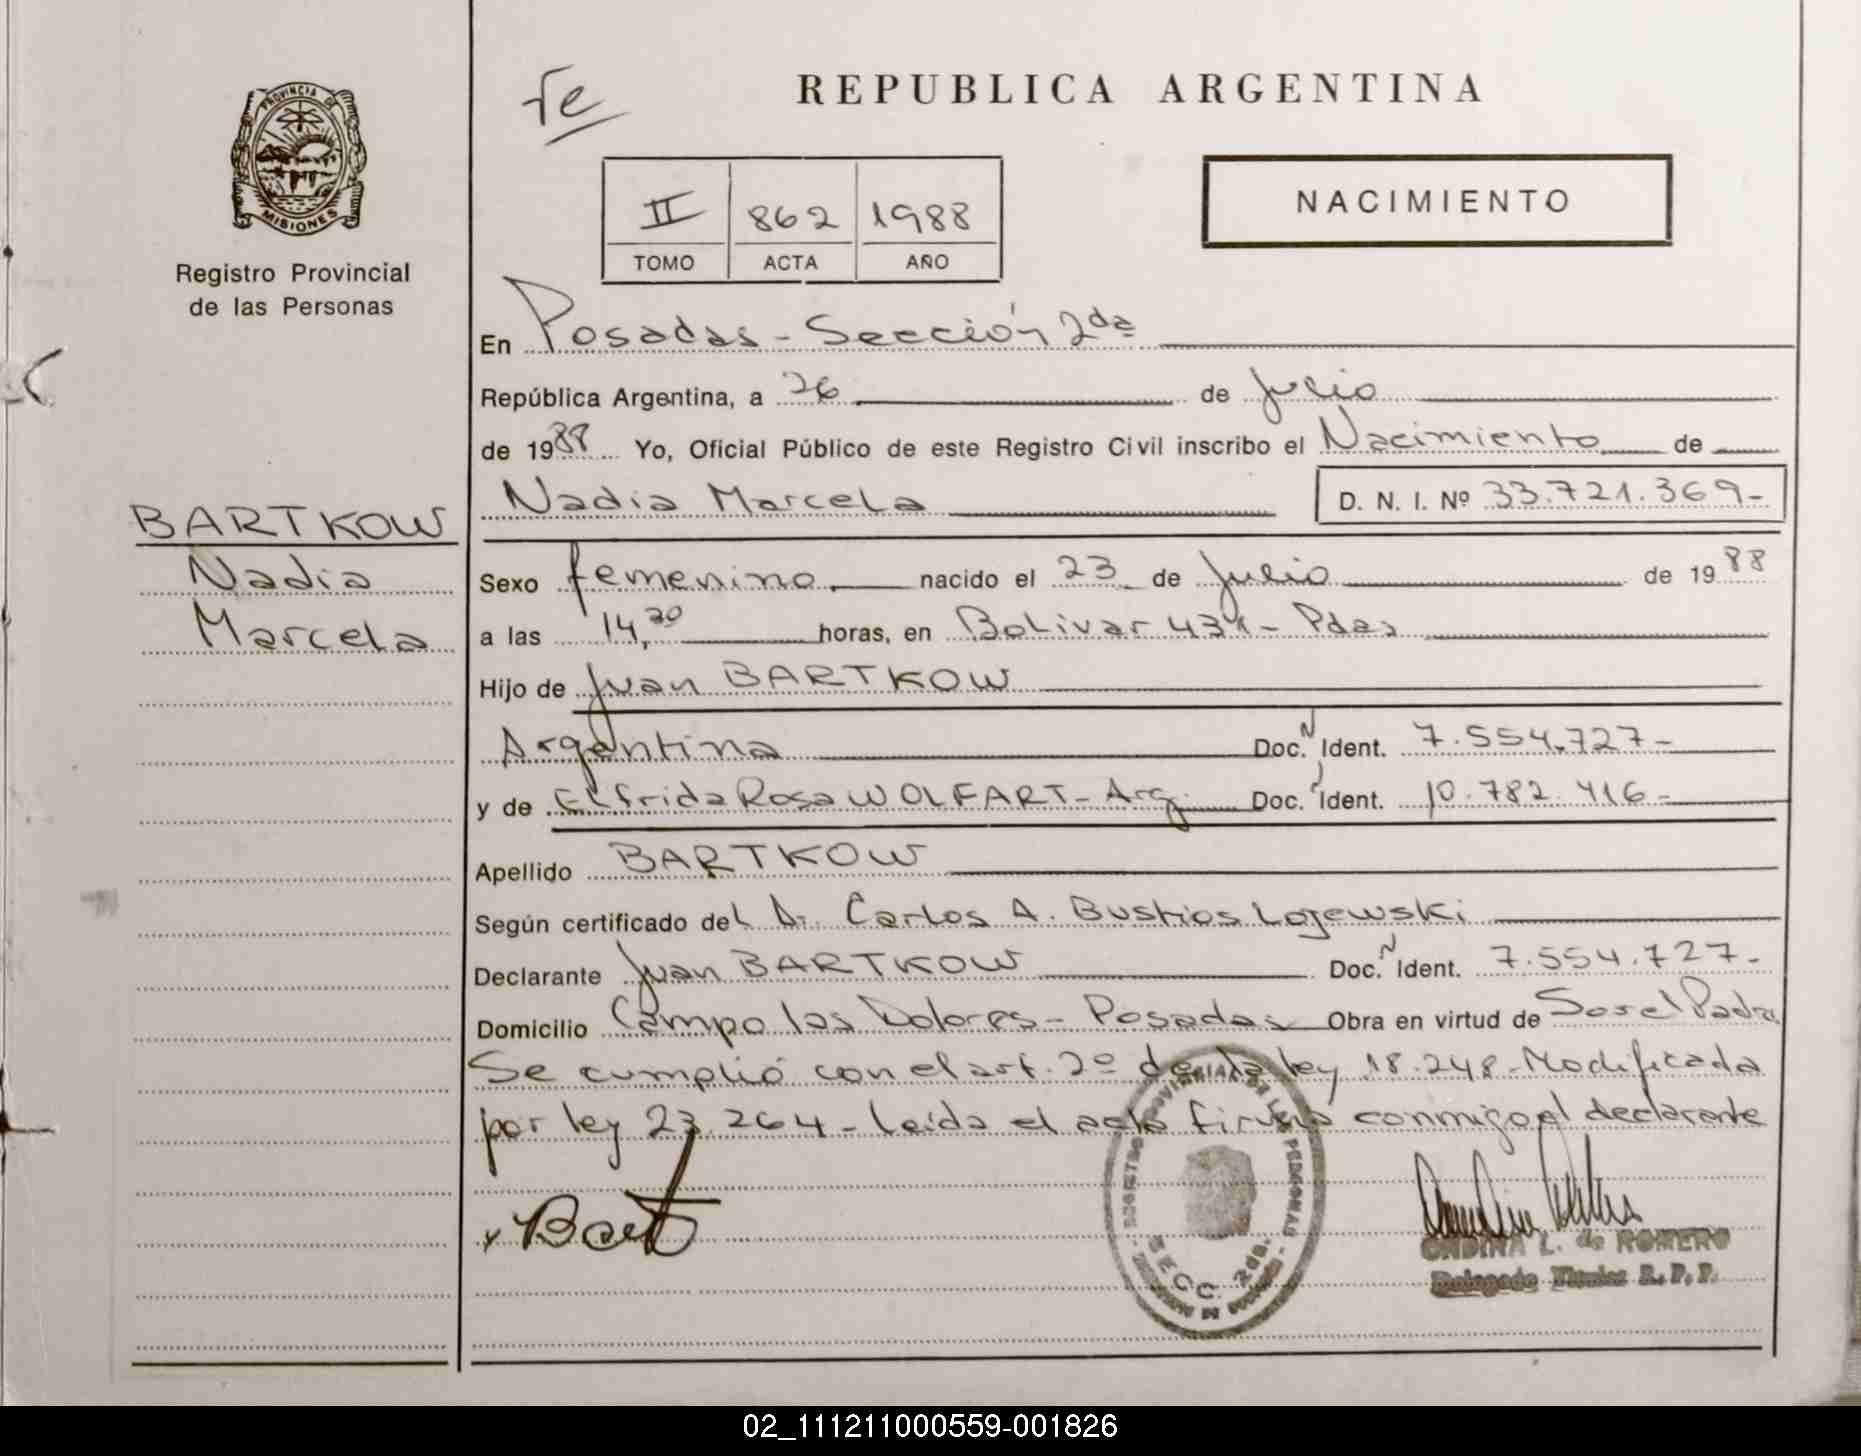 Te
REPUBLICA ARGENTINA
PROVINCIA DE
MISIONES
Registro Provincial
de las Personas
II 862 1988
TOMO ACTA AÑO
NACIMIENTO
En Posadas - Sección 2da
República Argentina, a 26 de Julio
de 1988 Yo, Oficial Público de este Registro Civil inscribo el Nacimiento de
Nadia Marcela D. N. I. Nº 33.721.369-
BARTKOW
Nadia
Marcela
Sexo femenino nacido el 23 de Julio de 1988
a las horas, en Bolivar - Pdas
Hijo de Juan BARTKOW
Argentina Doc. Ident. 7.554.727-
y de Elfrida Rosa WOLFART - Arg. Doc. Ident. 10.782.416-
Apellido BARTKOW
Según certificado del Dr. Carlos A. Bustios Lojewski
Declarante Juan BARTKOW Doc. Ident. 7.554.727-
Domicilio Campo las Dolores - Posadas Obra en virtud de Ser el Padre
Se cumplió con el art. 2º de la ley 18.248 - Modificada
por ley 23.264 - Leída el acta firma conmigo el declarante
SECC. 2da.
ONDINA L. de ROMERO
Delegado Técnico R. P. P.
02_111211000559-001826